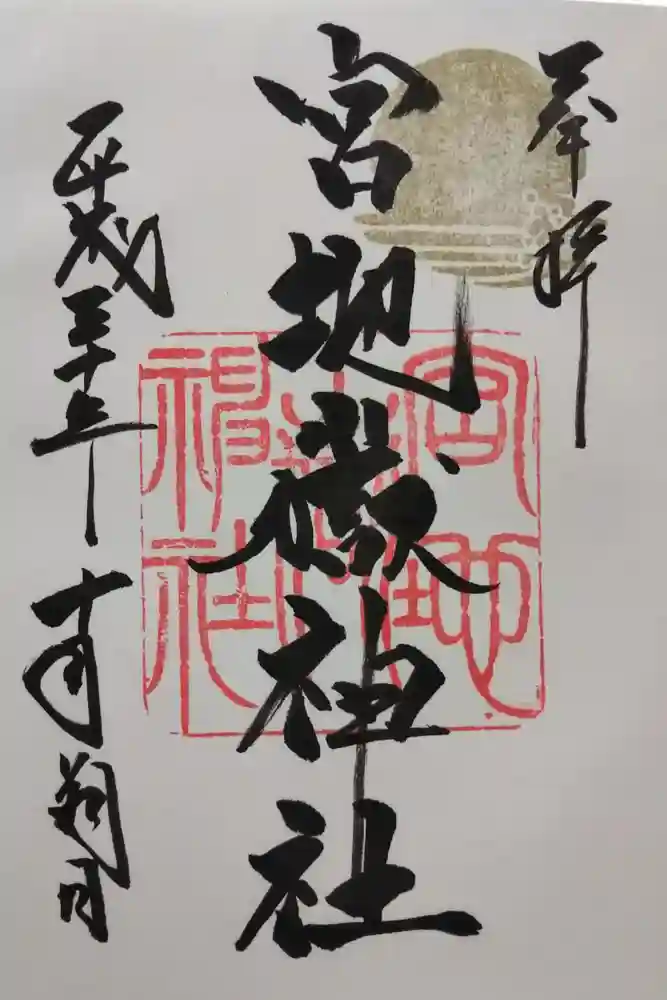 奉拝
宮地嶽神社
宮地嶽神社
平成三十年十月朔日